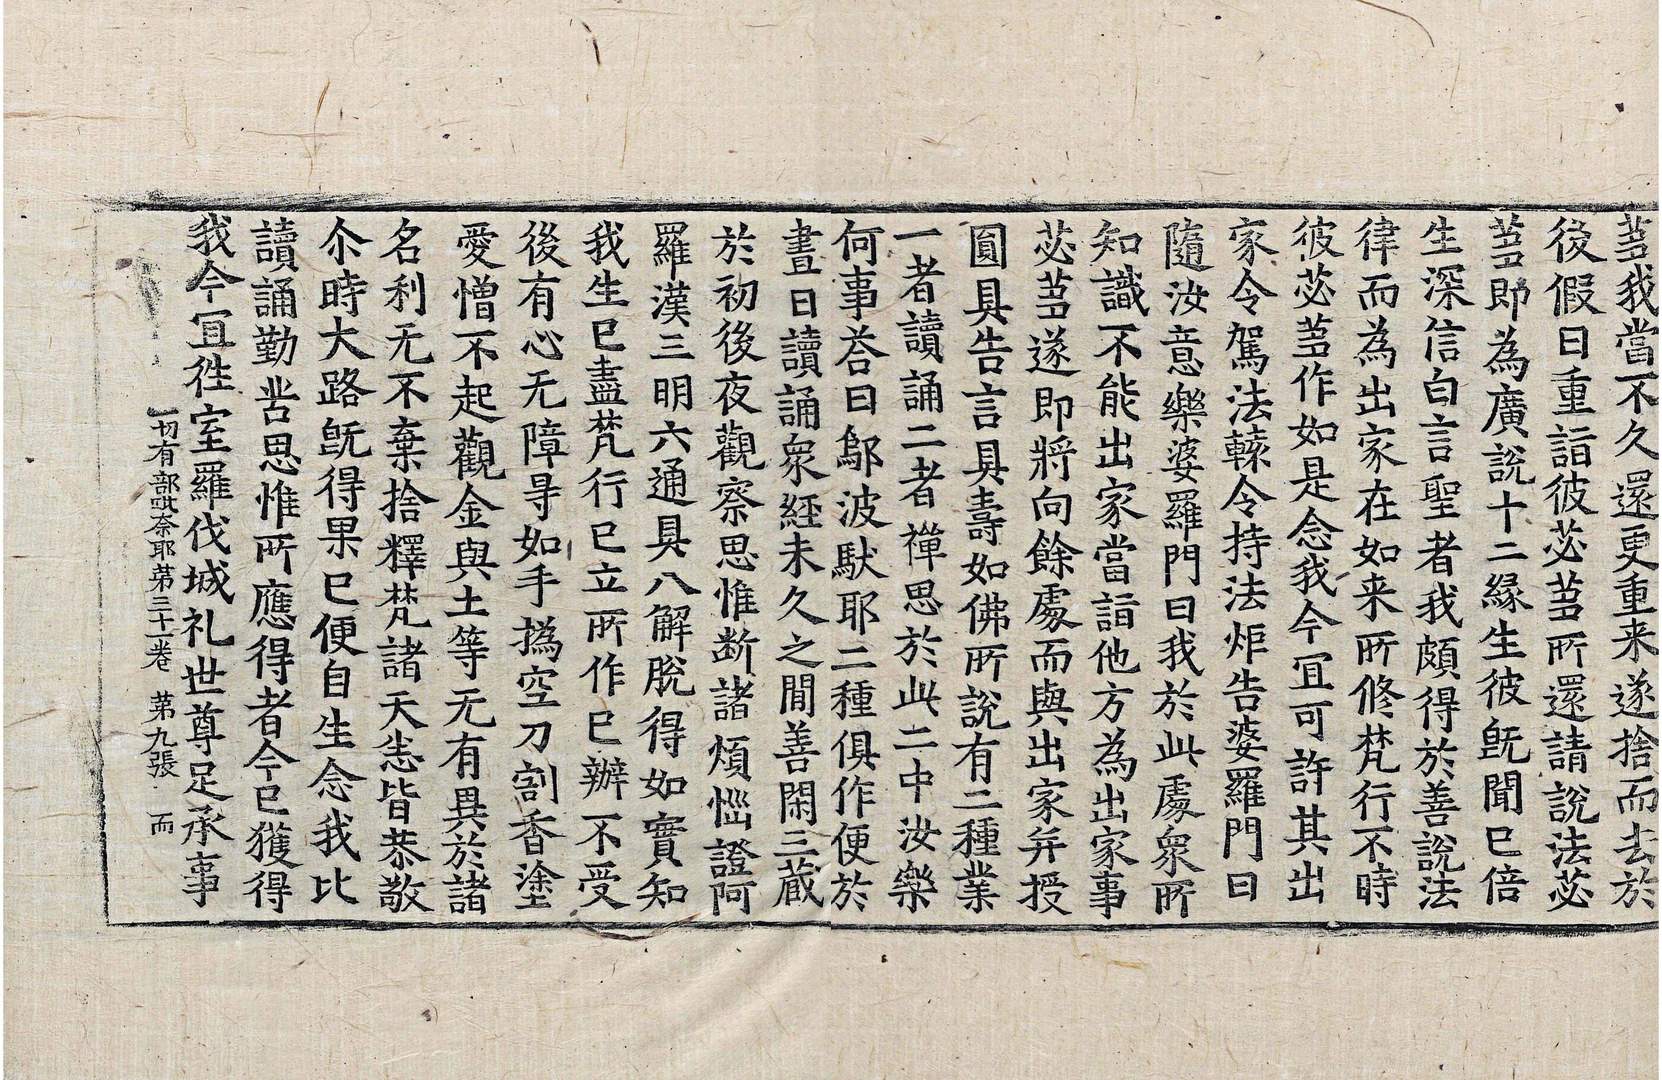 蒭我當不久還更重来遂捨而去於
後假日重詣彼苾蒭所還請說法苾
蒭即為廣說十二緣生彼旣聞已倍
生深信白言聖者我頗得於善說法
律而為出家在如来所修梵行不時
彼苾蒭作如是念我今宜可許其出
家令駕法轅令持法炬告婆羅門曰
隨汝意樂婆羅門曰我於此處衆所
知識不能出家當詣他方為出家事
苾蒭遂即將向餘處而與出家并授
圓具告言具壽如佛所說有二種業
一者讀誦二者禪思於此二中汝樂
何事荅曰鄔波馱耶二種俱作便於
晝日讀誦衆經未久之閒善閑三藏
於初後夜觀察思惟斷諸煩惱證阿
羅漢三明六通具八解脫得如實知
我生已盡梵行已立所作已辦不受
後有心无障㝵如手撝空刀割香塗
愛憎不起觀金與土等无有異於諸
名利无不棄捨釋梵諸天悉皆恭敬
尒時大路旣得果已便自生念我比
讀誦勤苦思惟所應得者今已獲得
我今宜往室羅伐城礼世尊足承事
一切有部毗奈耶第三十一卷 第九張 而